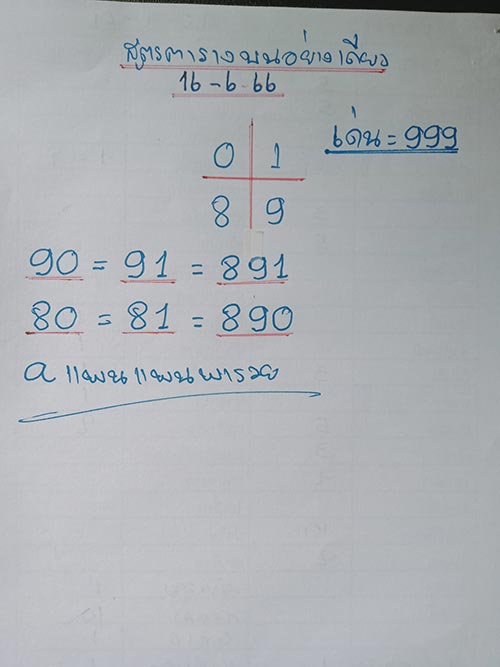 สูตรตารางบนอย่างเดียว
16-6-66
เด่น = 999
0 1
8 9
90 = 91 = 891
80 = 81 = 890
a แพนแพนพารวย